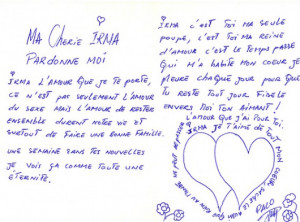 MA CHERIE IRMA
PARDONNE MOI
IRMA L'AMOUR QUE JE TE PORTE,
CE N'EST PAS SEULEMENT L'AMOUR
DU SEXE MAIS L'AMOUR DE RESTER
ENSEMBLE DURENT NOTRE VIE ET
SURTOUT DE FAIRE UNE BONNE FAMILLE.
UNE SEMAINE SANS TES NOUVELLES
JE VOIS ÇA COMME TOUTE UNE
ETERNITE.
IRMA C'EST TOI MA SEULE
POUPE, C'EST TOI MA REINE
D'AMOUR C'EST LE TEMPS PASSE
QUI M'A HABITE MON COEUR JE
PLEURE CHAQUE JOUR POUR QUE
TU RESTE TOUT JOUR FIDELE
ENVERS MOI TON AIMANT!
L'AMOUR QUE J'AI POUR TOI.
IRMA JE T'AIME DE TOUT MON COEUR SACHE LE
RIEN AU MONDE NE PEUT
PACO